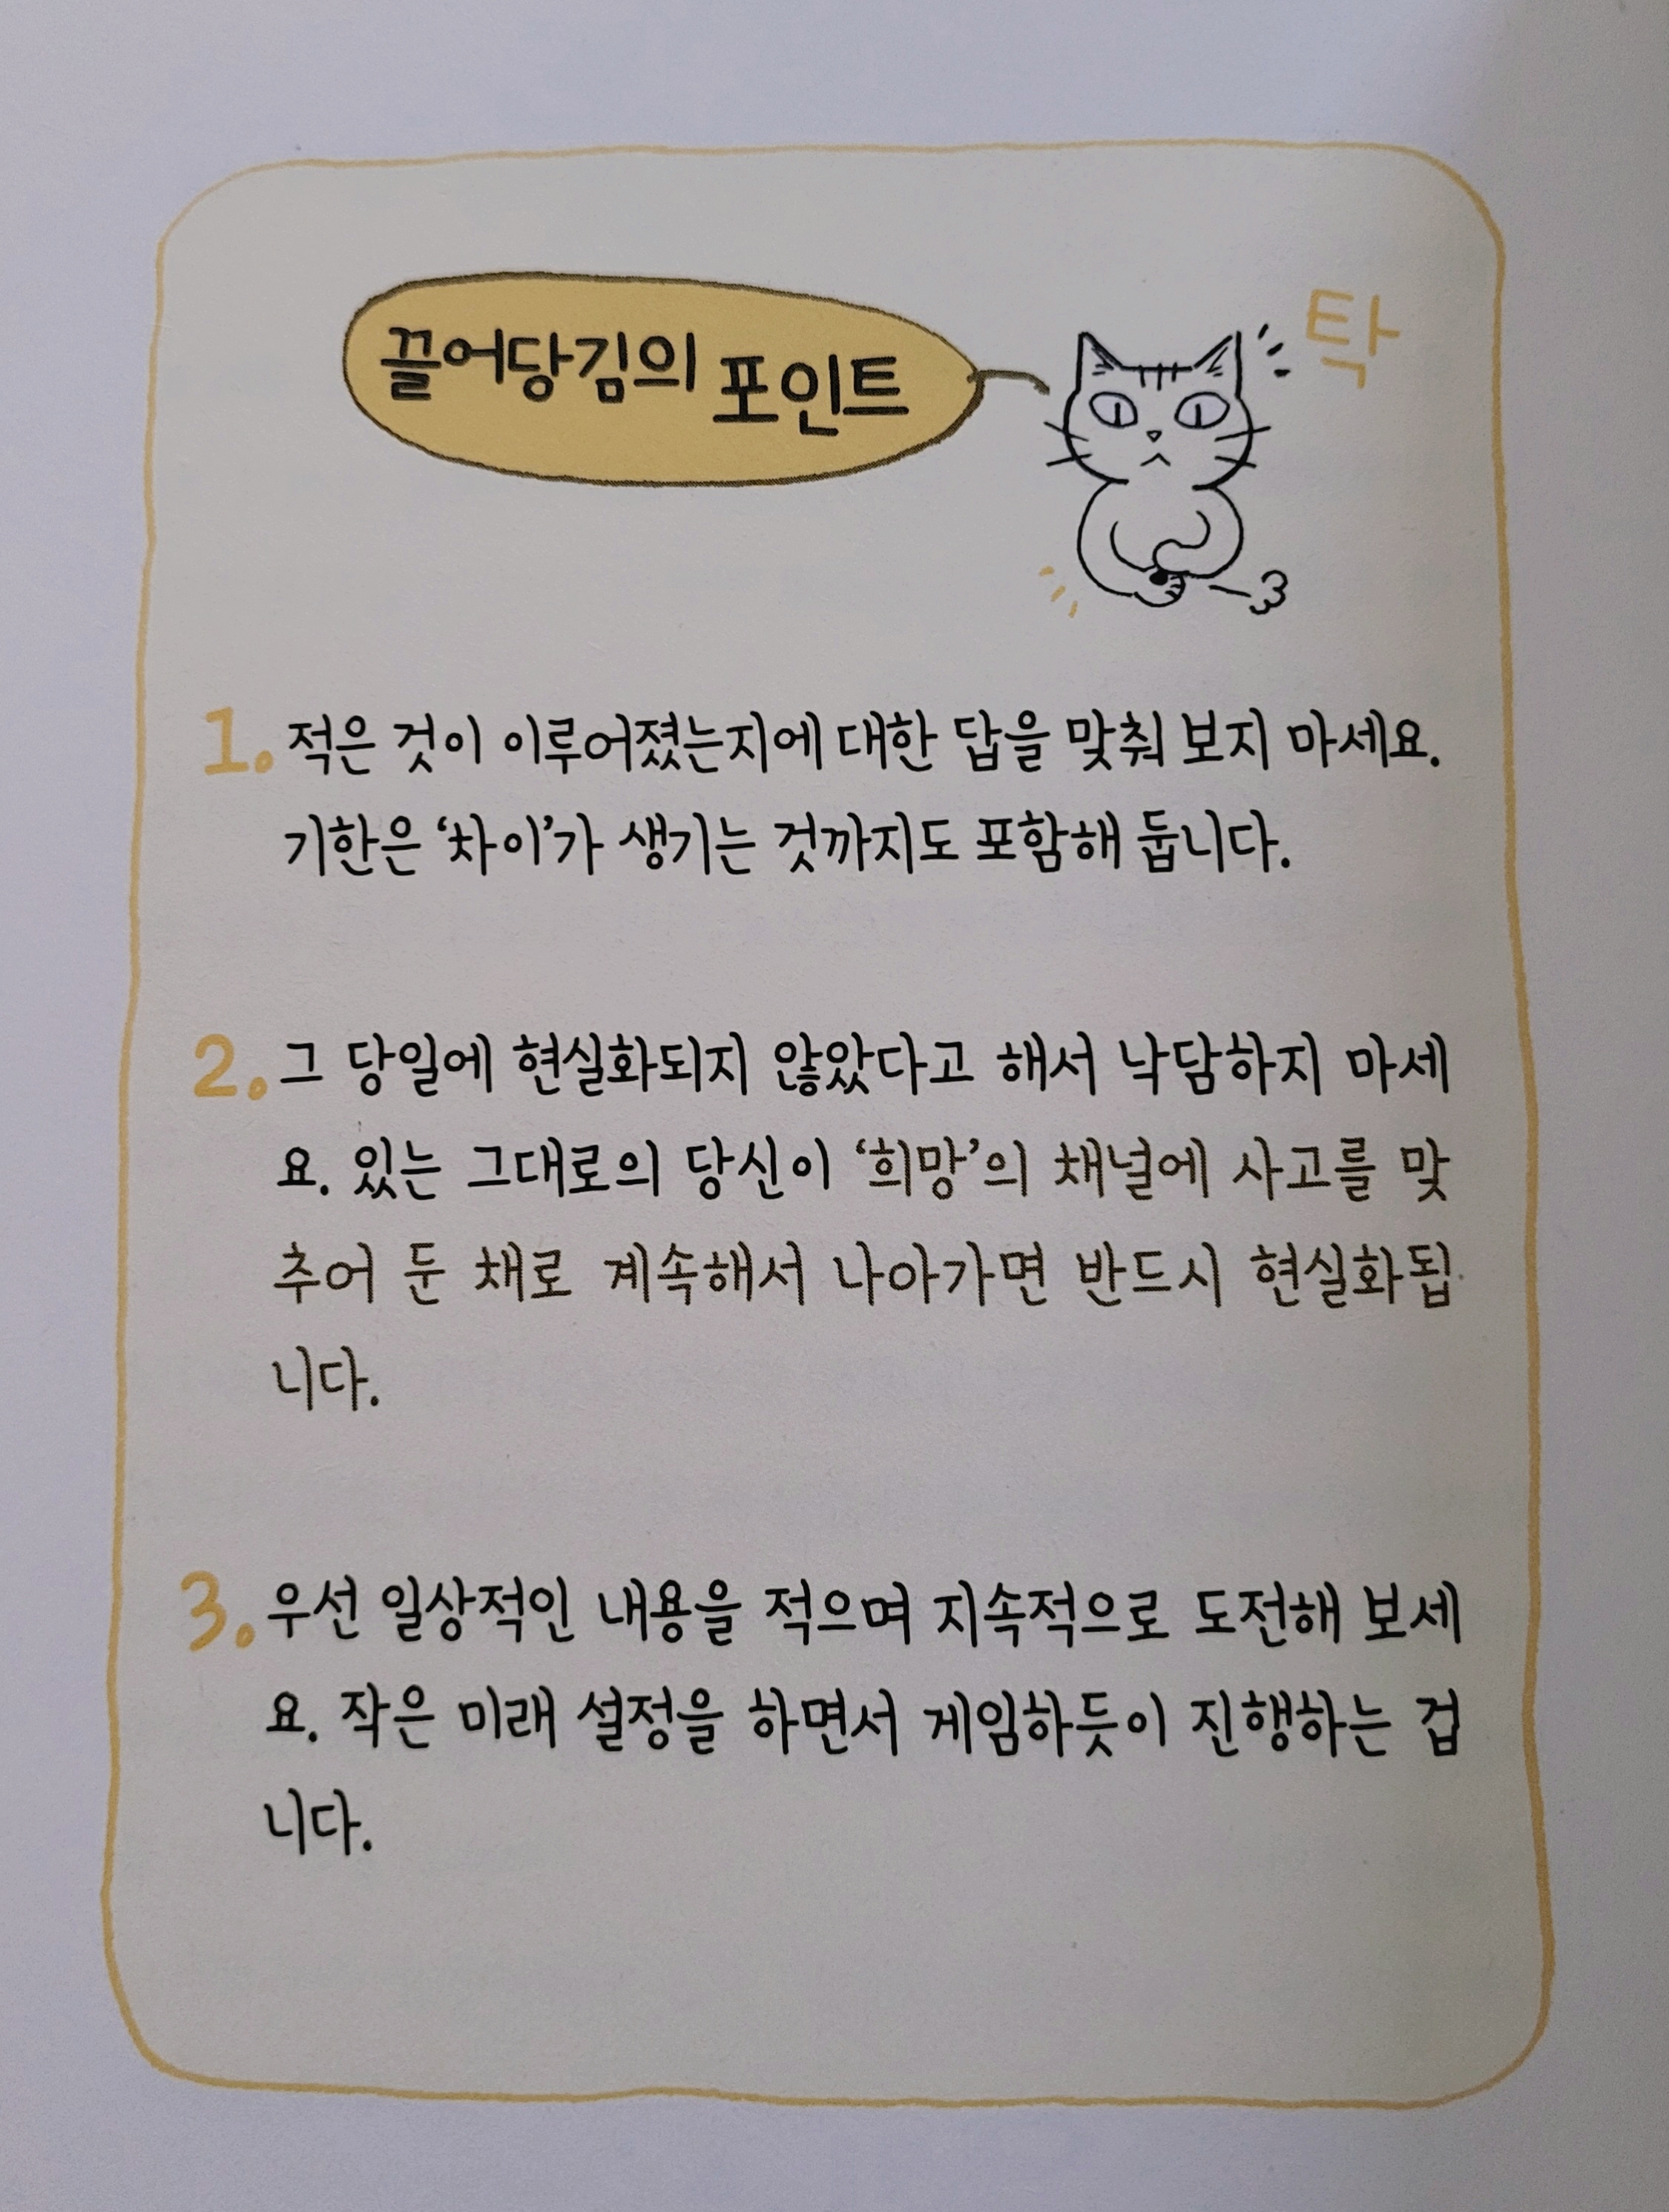 끌어당김의 포인트
탁
1. 적은 것이 이루어졌는지에 대한 답을 맞춰 보지 마세요.
기한은 ‘차이’가 생기는 것까지도 포함해 둡니다.
2. 그 당일에 현실화되지 않았다고 해서 낙담하지 마세
요. 있는 그대로의 당신이 ‘희망’의 채널에 사고를 맞
추어 둔 채로 계속해서 나아가면 반드시 현실화됩
니다.
3. 우선 일상적인 내용을 적으며 지속적으로 도전해 보세
요. 작은 미래 설정을 하면서 게임하듯이 진행하는 겁
니다.